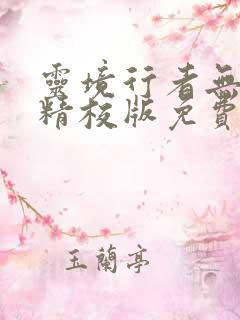 靈境行者無
精校版免費
玉蘭亭